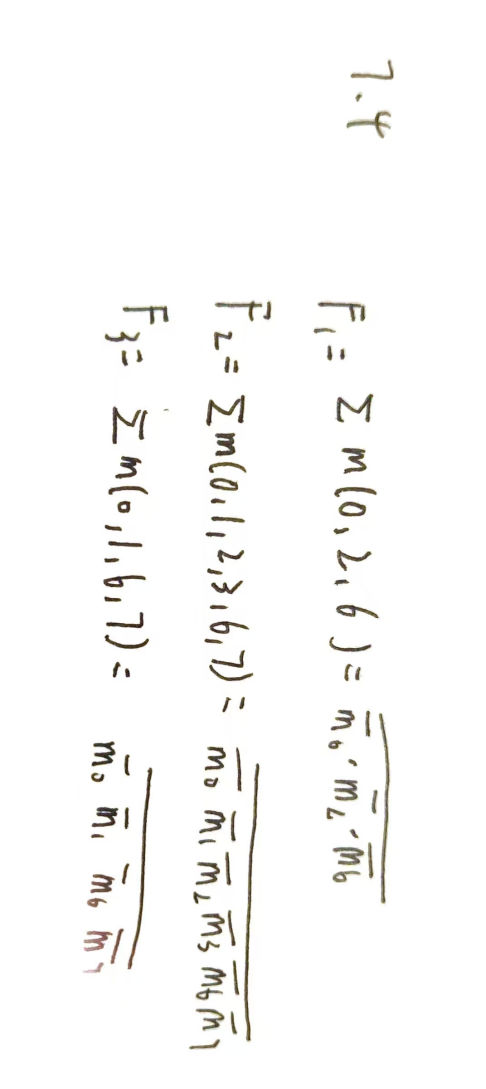 7.4
F₁ = Σ m(0,2,6) = \overline{\overline{m}₀·\overline{m}₂·\overline{m}₆}
F₂ = Σm(0,1,2,3,6,7) = \overline{\overline{m}₀ \overline{m}₁ \overline{m}₂ \overline{m}₃ \overline{m}₆ \overline{m}₇}
F₃ = Σm(0,1,6,7) = \overline{\overline{m}₀ \overline{m}₁ \overline{m}₆ \overline{m}₇}